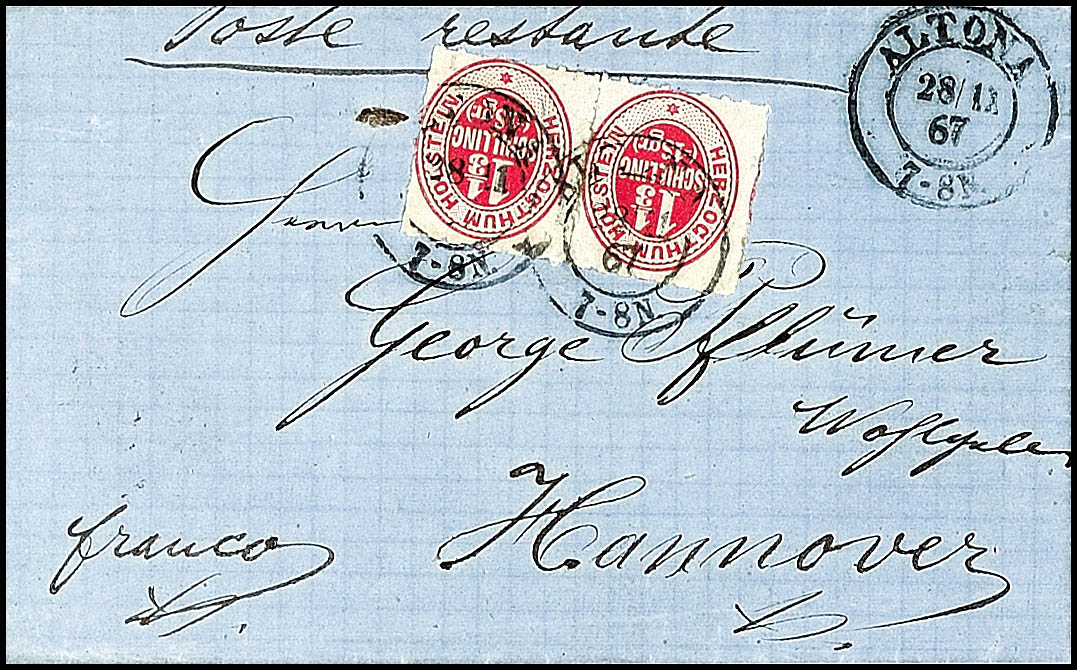 Poste restante
ALTONA
28/11
67
7-8N.
HERZOGTHUM HOLSTEIN
1 1/3
SCHILLING
HERZOGTHUM HOLSTEIN
1 1/3
SCHILLING
8 11
7-8N.
67
7-8N.
Herrn
George Pflümer
Wohlgeb
Hannover
franco